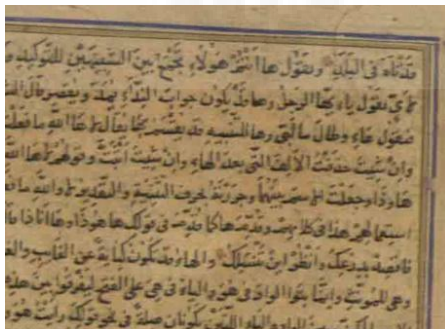 وتقول ها انتم هؤلاء تجمع بين التنبيهين للتوكيد
ايها الرجل وها قد تكون جواب النداء يمد ويقصر قال
فيقول هاء وطال ما لبى وها للتنبيه قد يقسم بها يقال لا ها الله ما فعلت
وان شئت حذفت الالف التي بعد الهاء وان شئت اثبت وقولهم لا ها الله
ها وذا وجعلت الاسم بينهما وجررته بحرف التنبيه والتقدير لا والله ما
استعمالهم هذا في كلامهم وقدم ها كما قدم في قولك ها هوذا وها انا ذا
فاقصد بذرعك وانظر اين تنسلك والهاء قد تكون كناية عن الغائب
وهي للمونث وانما بنوا الواو في هو والياء في هي على الفتح ليفرقوا بين
الواو والياء اللتين تكونان صلة في نحو قولك رايتهو